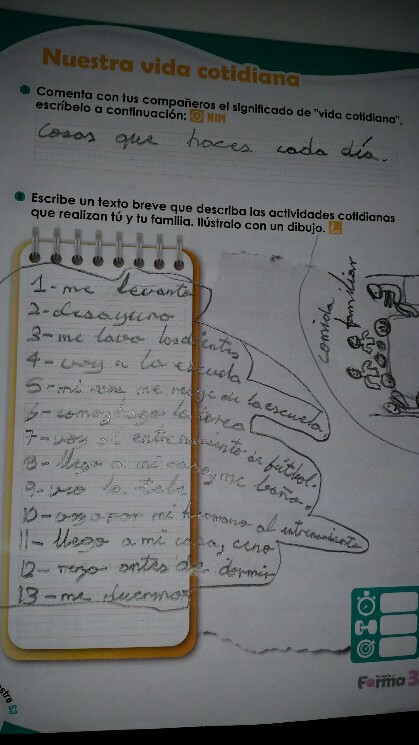 Nuestra vida cotidiana
1 Comenta con tus compañeros el significado de "vida cotidiana", 
escríbelo a continuación: NIM
Cosas que haces cada día.
2 Escribe un texto breve que describa las actividades cotidianas
que realizan tú y tu familia. Ilústralo con un dibujo.
1-me levanto
2-desayuno
3-me lavo los dientes
4-voy a la escuela
5-mi me de la escuela
6-como, hago la tarea
7-voy al entrenamiento de fútbol.
8-llego a mi casa y me baño.
9-veo la tele
10-voy por mi hermano al entrenamiento
11-llego a mi casa, ceno
12-rezo antes de dormir
13-me duermo
comida familiar
Forma 3
stre S3